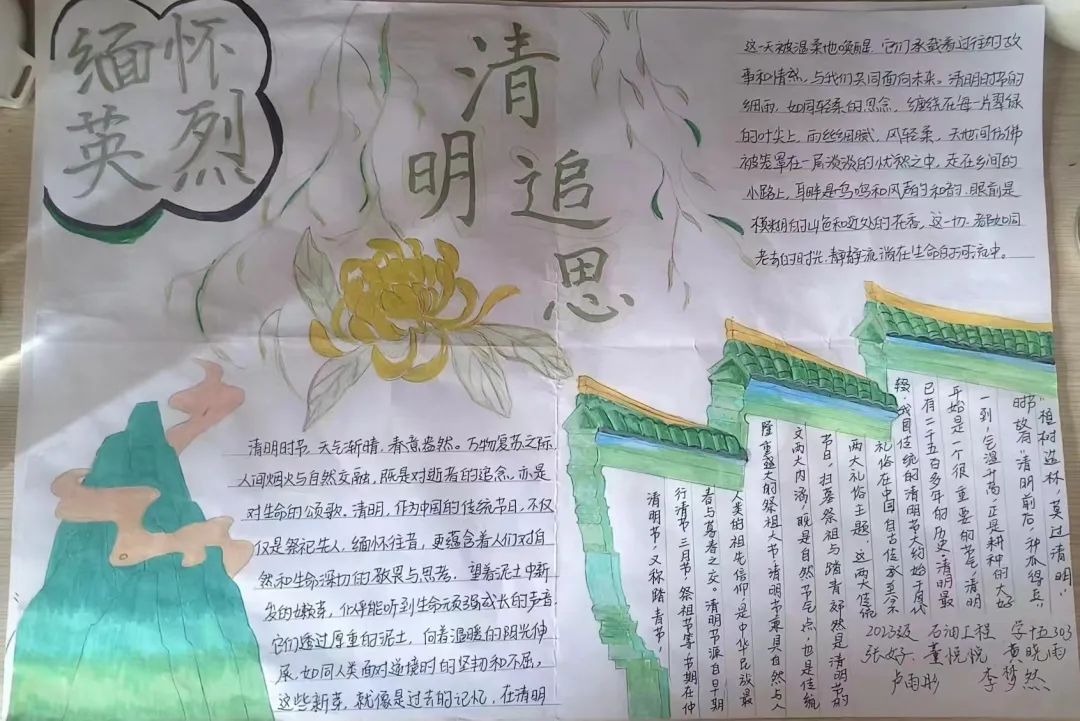 缅怀
英烈
清明
追思
这一天被温柔地唤醒，它们承载着过往的故
事和情感，与我们共同面向未来。清明时节的
细雨，如同轻柔的思念，缠绕在每一片翠绿
的叶尖上，雨丝细腻，风轻柔，天地间仿佛
被笼罩在一层淡淡的忧愁之中，走在乡间的
小路上，耳畔是鸟鸣和风声的和韵，眼前是
模糊的山色和近处的花香，这一切，都如同
老去的时光，静静流淌在生命的河流中。
清明时节，天气渐晴，春意盎然。万物复苏之际，
人间烟火与自然交融，既是对逝者的追念，亦是
对生命的颂歌。清明，作为中国的传统节日，不仅
仅是祭祀先人，缅怀往昔，更蕴含着人们对自
然和生命深切的敬畏与思考。望着泥土中新
发的嫩芽，似乎能听到生命顽强成长的声音，
它们透过厚重的泥土，向着温暖的阳光伸
展，如同人类面对逆境时的坚韧和不屈。
这些新芽，就像是过去的记忆，在清明
清明节，又称踏青节，
行清节、三月节、祭祖节等，节期在仲
春与暮春之交。清明节源自早期
人类的祖先信仰，是中华民族最
隆重盛大的祭祖大节。清明节兼具自然与人
文两大内涵，既是自然节气点，也是传统
节日，扫墓祭祖与踏青郊游是清明节的
两大礼俗主题，这两大传统
礼俗在中国自古传承至今
辍。我国传统的清明节大约始于周代
已有二千五百多年的历史，清明最
开始是一个很重要的节气，清明
一到，气温升高，正是耕种的大好
时节，故有“清明前后，种瓜得瓜”，
“植树造林，莫过清明”
2023级 石油工程 学十五303
张好、董悦悦 黄晓雨
卢雨彤 李梦然